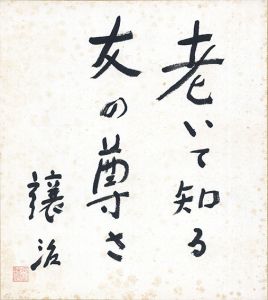 老いて知る
友の尊さ
讓治